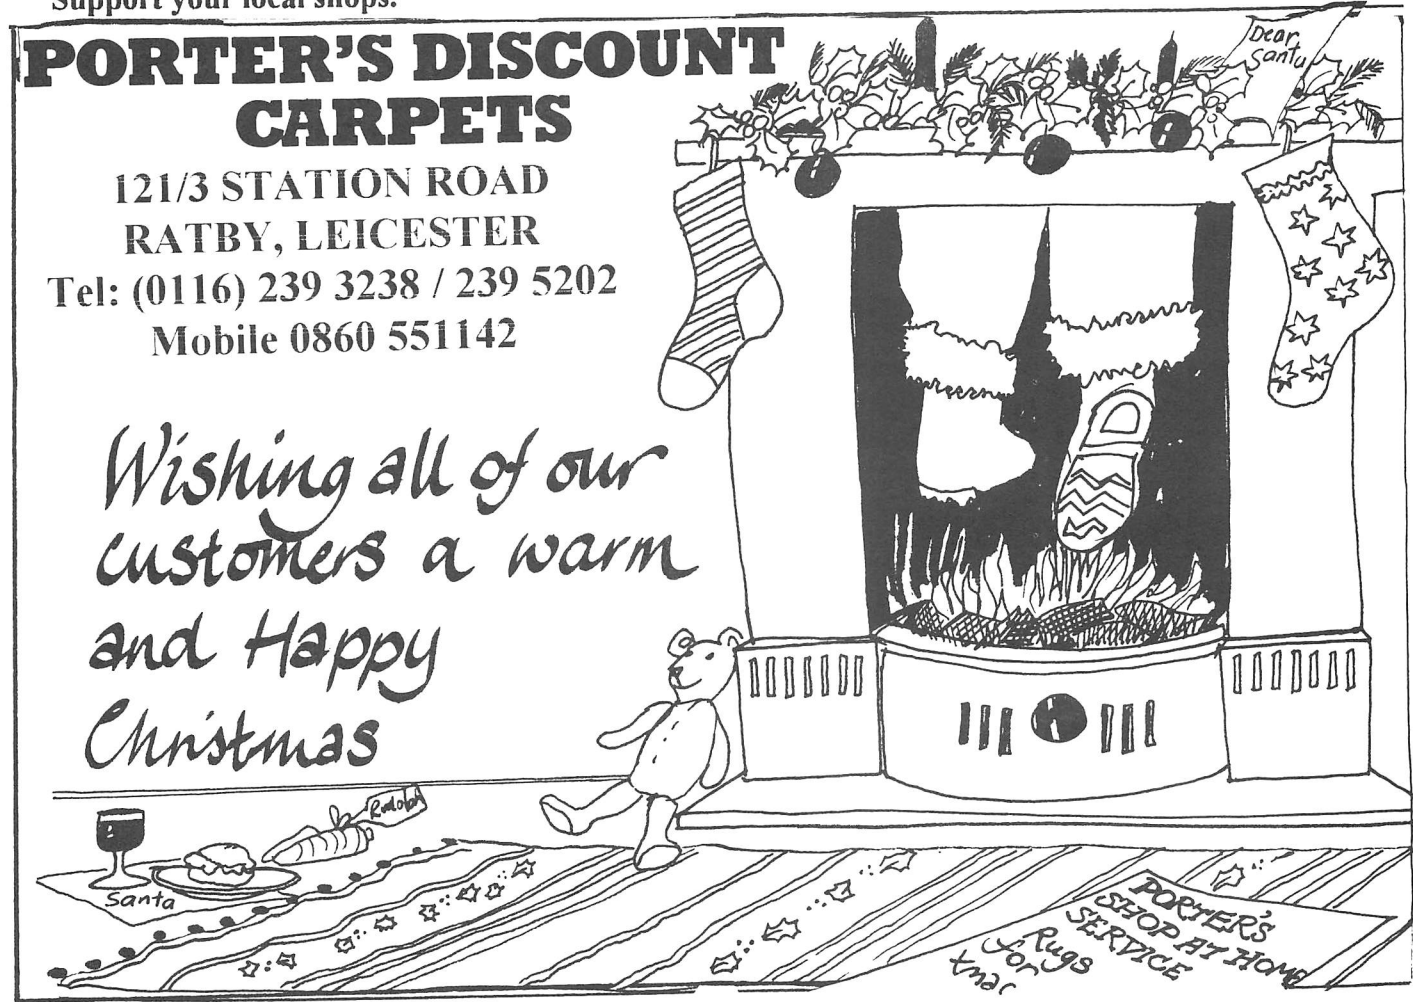 Support your local shops.
PORTER'S DISCOUNT
CARPETS
121/3 STATION ROAD
RATBY, LEICESTER
Tel: (0116) 239 3238 / 239 5202
Mobile 0860 551142
Wishing all of our
customers a warm
and Happy
Christmas
Dear
Santa
Rudolph
Santa
PORTER'S
SHOP AT HOME
SERVICE
Rugs
for
Xmas